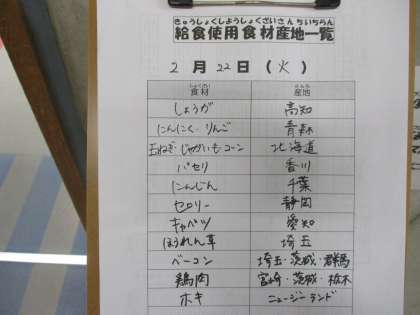 きゅうしょくしようしょくざいさんちいちらん
給食使用食材産地一覧
2月22日(火)
しょくざい さんち
食材 産地
しょうが 高知
にんにく・りんご 青森
玉ねぎ・じゃがいも・コーン 北海道
パセリ 香川
にんじん 千葉
セロリー 静岡
キャベツ 愛知
ほうれん草 埼玉
ベーコン 埼玉・茨城・群馬
鶏肉 宮崎・茨城・栃木
ホキ ニュージーランド